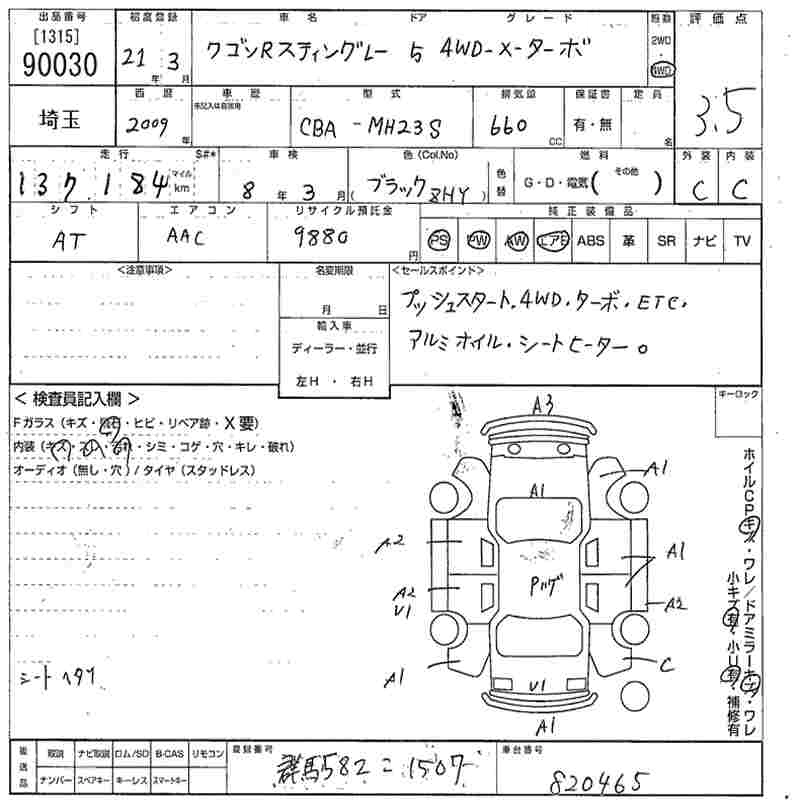 出品番号 初度登録 車名 ドア グレード 駆動 評価点
[1315]
90030 21年 3月 ワゴンRスティングレー 5 4WD-X-ターボ 2WD・4WD 3.5
西暦 車歴 型式 排気量 保証書 定員
埼玉 2009年 未記入は自家用 CBA-MH23S 660CC 有・無 名
走行 S#* 車検 色(Col.No) 色替 燃料 外装 内装
137,184 マイル km 8年 3月 (ブラック ZHY) G・D・電気( その他 ) C C
シフト エアコン リサイクル預託金 純正装備品
AT AAC 9880円 PS PW AW エアB ABS 革 SR ナビ TV
<注意事項> 名変期限 <セールスポイント>
月 日
プッシュスタート.4WD.ターボ.ETC.
輸入車
ディーラー・並行
アルミホイル・シートヒーター。
左H・右H
<検査員記入欄> キーロック
Fガラス(キズ・飛石・ヒビ・リペア跡・X要)
内装(キズ・スレ・汚れ・シミ・コゲ・穴・キレ・破れ)
オーディオ(無し・穴)/タイヤ(スタッドレス)
A3
A1
A1
A2
A1
Pハゲ
A2
U1
A2
シートヘタリ
A1
C
U1
A1
ホイルCPキズ・ワレ/ドアミラーキズ・ワレ
小キズ有・小U有・補修有
後送品 取説 ナビ取説 ロム/SD B-CAS リモコン 登録番号 車台番号
ナンバー スペアキー キーレス スマートキー 群馬582 こ 1507 820465